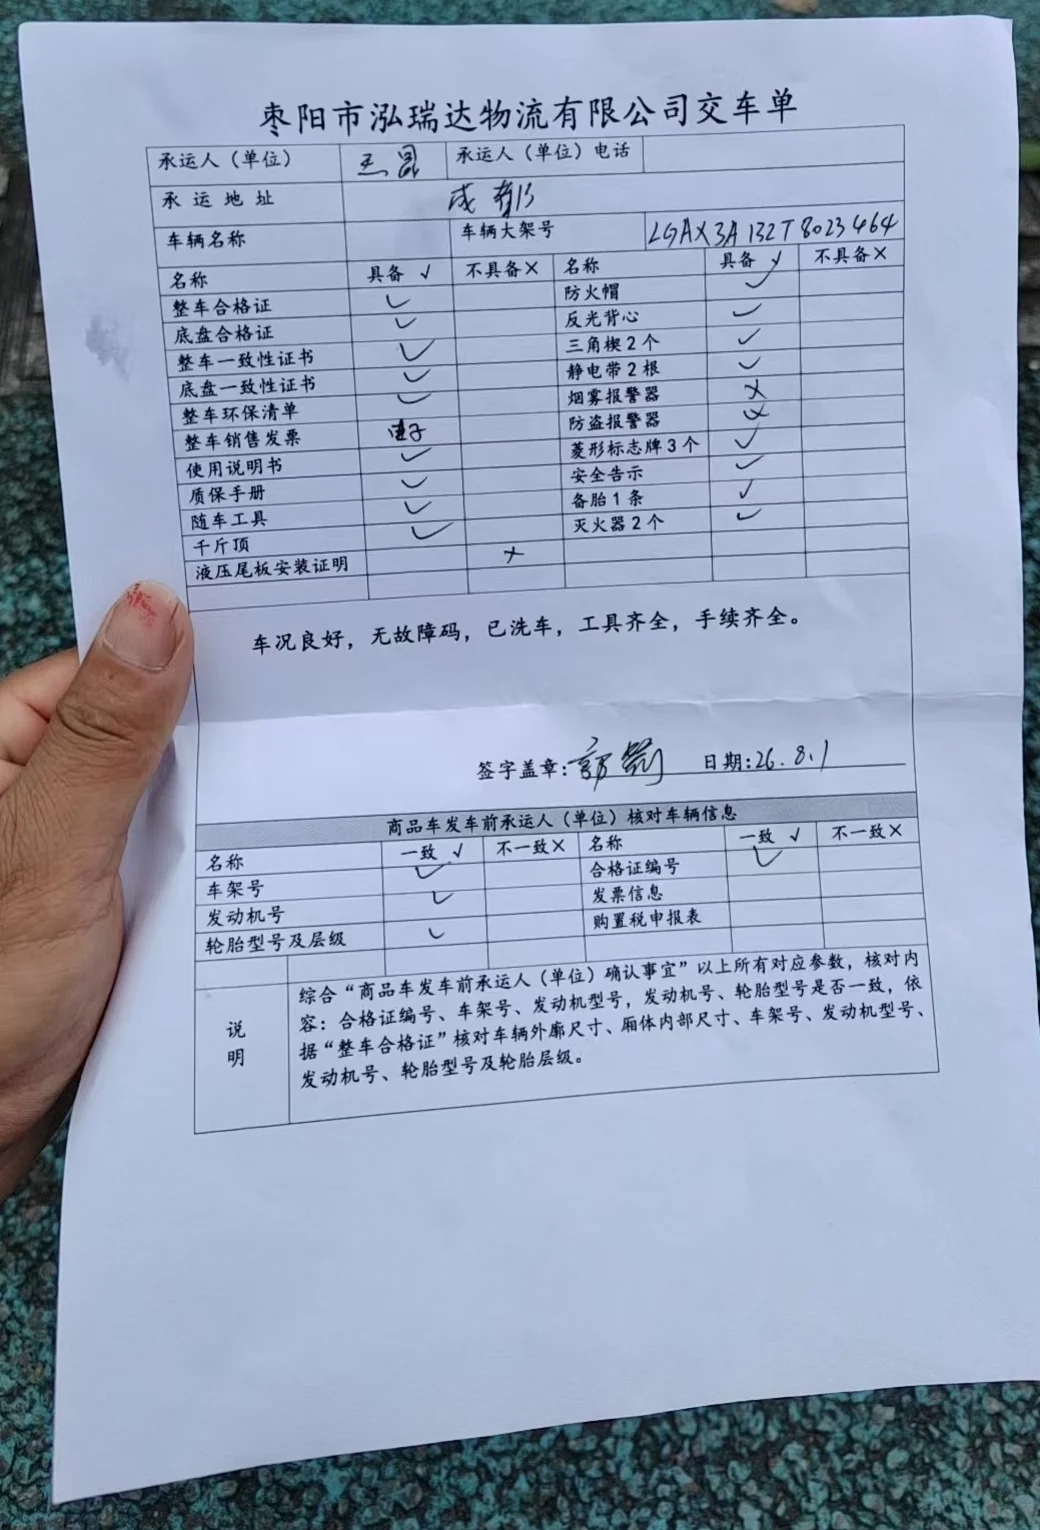 枣阳市泓瑞达物流有限公司交车单
承运人（单位） 承运人（单位）电话
承运地址 成都
车辆名称 车辆大架号 LGAX3A132T8023464
名称 具备 √ 不具备× 名称 具备 √ 不具备×
整车合格证 √ 防火帽 √
底盘合格证 √ 反光背心 √
整车一致性证书 √ 三角楔2个 √
底盘一致性证书 √ 静电带2根 √
整车环保清单 √ 烟雾报警器 ×
整车销售发票 电子 防盗报警器 ×
使用说明书 √ 菱形标志牌3个 √
质保手册 √ 安全告示 √
随车工具 √ 备胎1条 √
千斤顶 √ 灭火器2个 √
液压尾板安装证明 ×
车况良好，无故障码，已洗车，工具齐全，手续齐全。
签字盖章： 日期:26.8.1
商品车发车前承运人（单位）核对车辆信息
名称 一致 √ 不一致× 名称 一致 √ 不一致×
车架号 √ 合格证编号 √
发动机号 √ 发票信息
轮胎型号及层级 √ 购置税申报表
说明
综合“商品车发车前承运人（单位）确认事宜”以上所有对应参数，核对内
容：合格证编号、车架号、发动机型号，发动机号、轮胎型号是否一致，依
据“整车合格证”核对车辆外廓尺寸、厢体内部尺寸、车架号、发动机型号、
发动机号、轮胎型号及轮胎层级。